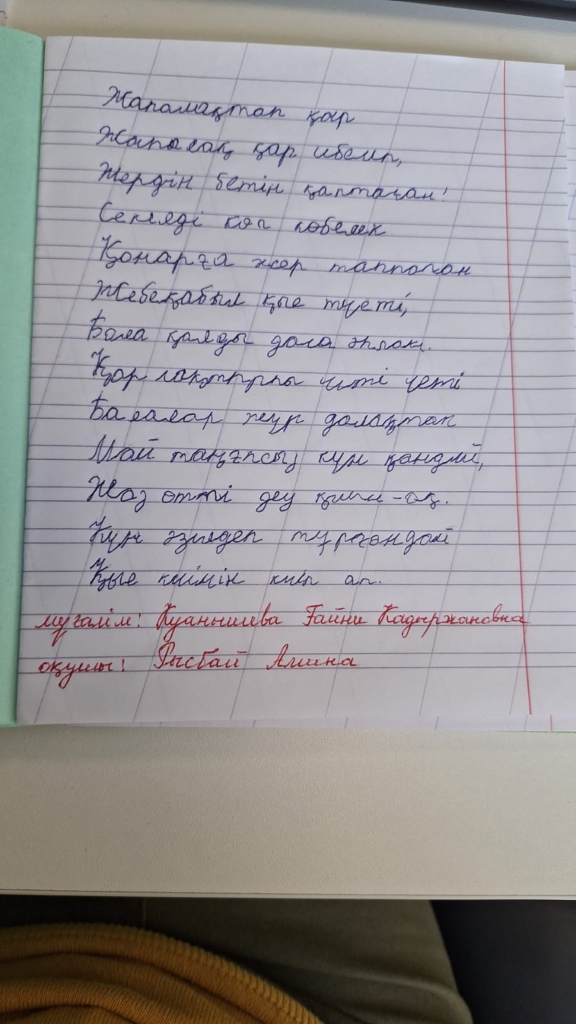 Жапалақтап қар
Жапалақ қар
Жердің бетін қаптаған!
Секілді көп көбелек
Қонарға жер таппаған
түсті,
Бала қалды дала
Қар лақтырып
Балалар жүр далақтап
Май таңғысыз күн қандай,
Жаз өтті деу қиын-ақ.
Күн әзілдеп тұрғандай
киімін киіп ап.
мұғалім: Куанышева Гайни Кадыржановна
оқушы: Рысбай Амина